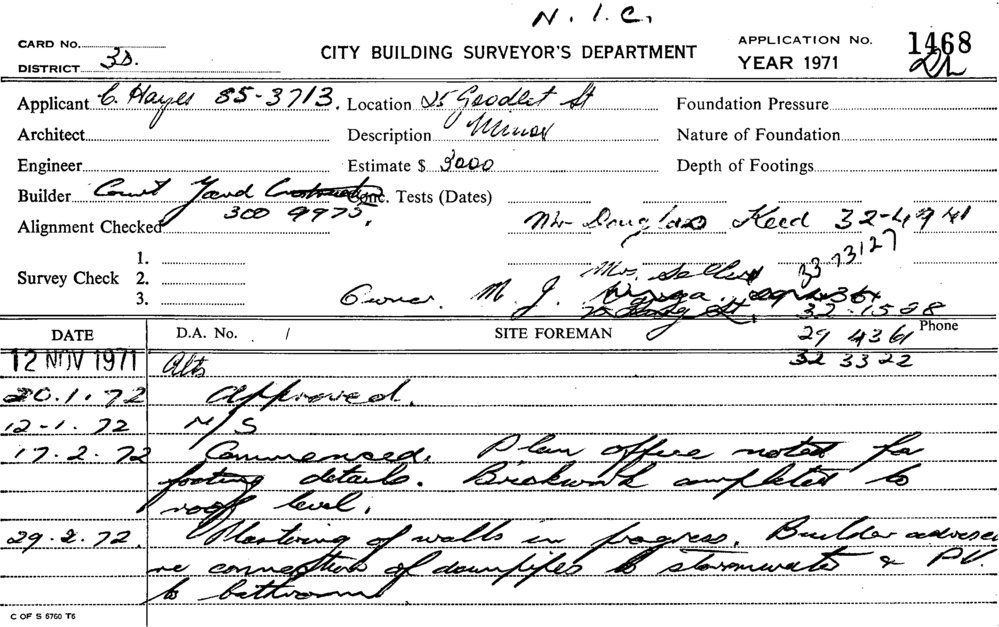 N. I. C.
CARD No.
DISTRICT 3D.
CITY BUILDING SURVEYOR'S DEPARTMENT
APPLICATION No. 1468
YEAR 1971
Applicant C. Hayes 85-3713. Location 25 Goodlet St Foundation Pressure
Architect Description Minor Nature of Foundation
Engineer Estimate $ 3000 Depth of Footings
Builder Court Yard Construction Conc. Tests (Dates)
300 9975.
Alignment Checked Mr Douglas Keed 32-4941
33 73127
1.
Survey Check 2. Mrs.
3. Owner. M. J.
32-1528
DATE D.A. No. / SITE FOREMAN 29 4361 Phone
12 NOV 1971 Alts 32 3322
20.1.72 Approved.
12-1.72 N/S
17.2.72 Commenced. Plan office noted for
footing details. Brickwork completed to
roof level.
29.2.72. Plastering of walls in progress. Builder advised
re connection of downpipes to stormwater & P.V.
to bathroom
C OF S 6760 T6